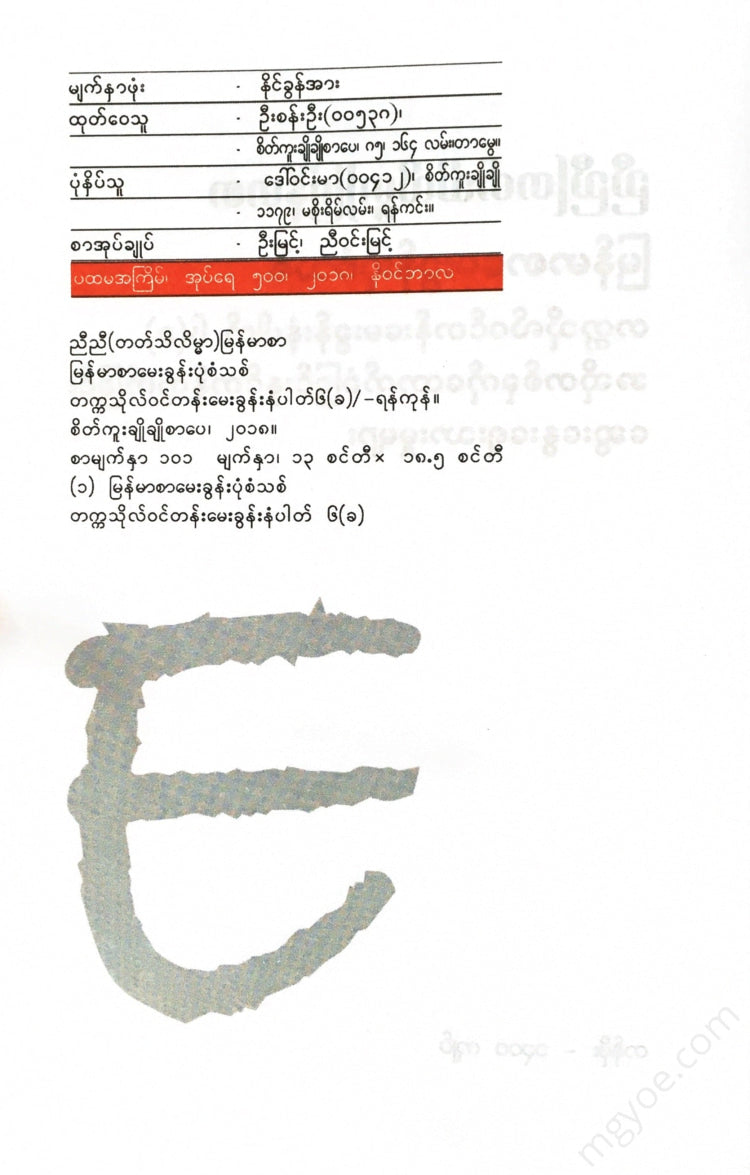 မျက်နှာဖုံး - နိုင်ခွန်အား
ထုတ်ဝေသူ - ဦးစန်းဦး(၀၀၅၃၈)၊
- စိတ်ကူးချိုချိုစာပေ၊ ၈၅၊ ၁၆၄ လမ်း၊တာမွေ။
ပုံနှိပ်သူ - ဒေါ်ဝင်းမာ(၀၀၄၁၂)၊ စိတ်ကူးချိုချို
- ၁၁၇၉၊ မစိုးရိမ်လမ်း၊ ရန်ကင်း။
စာအုပ်ချုပ် - ဦးမြင့်၊ ညီဝင်းမြင့်
ပထမအကြိမ်၊ အုပ်ရေ ၅၀၀၊ ၂၀၁၈၊ နိုဝင်ဘာလ
ညီညီ(တတ်သိလိမ္မာ)မြန်မာစာ
မြန်မာစာမေးခွန်းပုံစံသစ်
တက္ကသိုလ်ဝင်တန်းမေးခွန်းနံပါတ်၆(ခ)/-ရန်ကုန်။
စိတ်ကူးချိုချိုစာပေ၊ ၂၀၁၈။
စာမျက်နှာ ၁၀၁ မျက်နှာ၊ ၁၃ စင်တီ× ၁၈.၅ စင်တီ
(၁) မြန်မာစာမေးခွန်းပုံစံသစ်
တက္ကသိုလ်ဝင်တန်းမေးခွန်းနံပါတ် ၆(ခ)
mgyoe.com